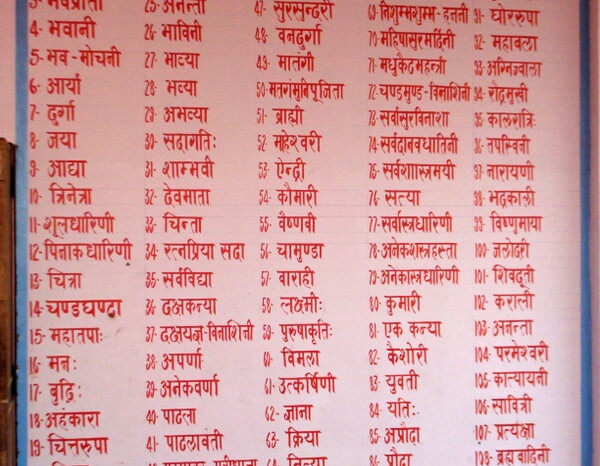 3- भवप्रीता
4- भवानी
5- भव-मोचनी
6- आर्या
7- दुर्गा
8- जया
9- आद्या
10- त्रिनेत्रा
11-शूलधारिणी
12-पिनाकधारिणी
13- चित्रा
14-चण्डघण्टा
15- महातपाः
16- मनः
17- बुद्धिः
18-अहंकारा
19- चित्तरुपा
25- अनन्ता
26- भाविनी
27- भाव्या
28- भव्या
29- अभव्या
30- सदागतिः
31- शाम्भवी
32- देवमाता
33- चिन्ता
34- रत्नप्रिया सदा
35- सर्वविद्या
36- दक्षकन्या
37- दक्षयज्ञ-विनाशिनी
38- अपर्णा
39- अनेकवर्णा
40- पाटला
41- पाटलावती
47- सुरसुन्दरी
48- वनदुर्गा
49- मातंगी
50-मतंगमुनिपूजिता
51- ब्राह्मी
52- माहेश्वरी
53- ऐन्द्री
54- कौमारी
55- वैष्णवी
56- चामुण्डा
57- वाराही
58- लक्ष्मीः
59- पुरुषाकृतिः
60- विमला
61- उत्कर्षिणी
62- ज्ञाना
63- क्रिया
64- नित्या
69-निशुम्भशुम्भ-हननी
70-महिषासुरमर्दिनी
71-मधुकैटभहन्त्री
72-चण्डमुण्ड-विनाशिनी
73-सर्वासुरविनाशा
74-सर्वदानवघातिनी
75-सर्वशास्त्रमयी
76- सत्या
77-सर्वास्त्रधारिणी
78-अनेकशस्त्रहस्ता
79-अनेकास्त्रधारिणी
80- कुमारी
81- एक कन्या
82- कैशोरी
83- युवती
84- यतिः
85- अप्रौढा
86- प्रौढा
91- घोररुपा
92- महाबला
93-अग्निज्वाला
94- रौद्रमुखी
95- कालरात्रिः
96- तपस्विनी
97- नारायणी
98- भद्रकाली
99- विष्णुमाया
100- जलोदरी
101- शिवदूती
102- कराली
103- अनन्ता
104- परमेश्वरी
105- कात्यायनी
106- सावित्री
107- प्रत्यक्षा
108- ब्रह्मवादिनी